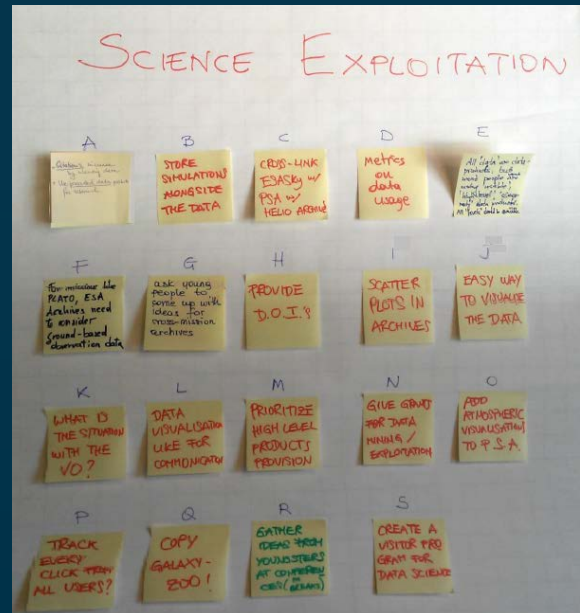 SCIENCE EXPLOITATION
A
by
data
B
STORE
SIMULATIONS
ALONGSIDE
THE DATA
C
CROSS-LINK
ESASKY w/
PSA w/
HELIO ARCHIVE
D
Metrics
on
data
usage
E
All
products,
people
F
For missions like
PLATO, ESA
Archives need
to consider
ground-based
observation data
G
ask young
people to
come up with
ideas for
cross-mission
archives
H
PROVIDE
D.O.I.?
I
SCATTER
PLOTS IN
ARCHIVES
J
EASY WAY
TO VISUALISE
THE DATA
K
WHAT IS
THE SITUATION
WITH THE
VO?
L
DATA
VISUALISATION
LIKE FOR
COMMUNICATION
M
PRIORITIZE
HIGH LEVEL
PRODUCTS
PROVISION
N
GIVE GRANTS
FOR DATA
MINING /
EXPLOITATION
O
ADD
ATMOSPHERIC
VISUALISATIONS
TO P.S.A.
P
TRACK
EVERY
CLICK FROM
ALL USERS?
Q
COPY
GALAXY-
ZOO!
R
GATHER
IDEAS FROM
YOUNGSTERS
AT
S
CREATE A
VISITOR PRO
GRAM FOR
DATA SCIENCE